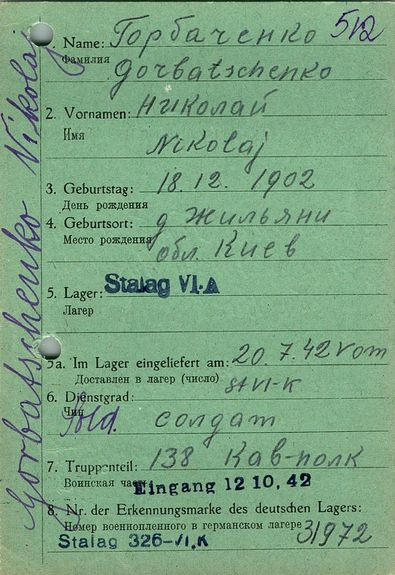 512
1. Name: Горбаченко
Фамилия
Gorbatschenko
2. Vornamen: Николай
Имя
Nikolaj
3. Geburtstag: 18.12. 1902
День рождения
4. Geburtsort: д Жильяни
Место рождения обл. Киев
5. Lager: Stalag VI.A
Лагер
5a. Im Lager eingeliefert am: 20.7.42 vom
Доставлен в лагер (число) St VI-K
6. Dienstgrad:
Чин Sold. солдат
7. Truppenteil: 138 Кав-полк
Воинская часть
Eingang 12 10. 42
8. Nr. der Erkennungsmarke des deutschen Lagers:
Номер военнопленного в германском лагере 31972
Stalag 326-VI.K
Gorbatschenko Nikolaj